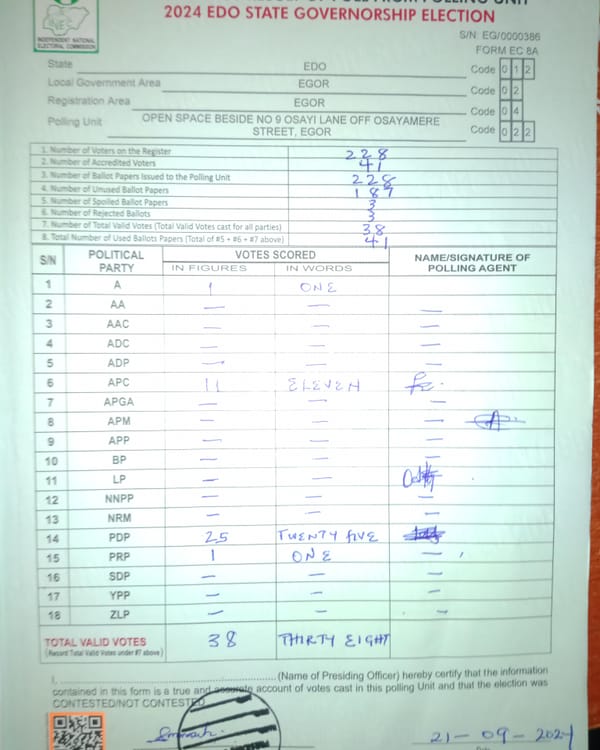 2024 EDO STATE GOVERNORSHIP ELECTION
INEC
INDEPENDENT NATIONAL
ELECTORAL COMMISSION
S/N: EG/0000386
FORM EC 8A
State EDO Code 0 1 2
Local Government Area EGOR Code 0 2
Registration Area EGOR Code 0 4
Polling Unit OPEN SPACE BESIDE NO 9 OSAYI LANE OFF OSAYAMERE
STREET, EGOR Code 0 2 2
1. Number of Voters on the Register 228
2. Number of Accredited Voters 41
3. Number of Ballot Papers Issued to the Polling Unit 228
4. Number of Unused Ballot Papers 187
5. Number of Spoiled Ballot Papers 3
6. Number of Rejected Ballots 3
7. Number of Total Valid Votes (Total Valid Votes cast for all parties) 38
8. Total Number of Used Ballots Papers (Total of #5 + #6 + #7 above) 41
S/N POLITICAL PARTY VOTES SCORED NAME/SIGNATURE OF POLLING AGENT
IN FIGURES IN WORDS
1 A 1 ONE
2 AA — — —
3 AAC — — —
4 ADC — — —
5 ADP — — —
6 APC 11 ELEVEN
7 APGA — — —
8 APM — — —
9 APP — — —
10 BP — — —
11 LP — —
12 NNPP — — —
13 NRM — — —
14 PDP 25 TWENTY FIVE
15 PRP 1 ONE —
16 SDP — — —
17 YPP — — —
18 ZLP — — —
TOTAL VALID VOTES 38 THIRTY EIGHT
(Record Total Valid Votes under #7 above)
I, (Name of Presiding Officer) hereby certify that the information
contained in this form is a true and accurate account of votes cast in this polling Unit and that the election was
CONTESTED/NOT CONTESTED
21-09-2024